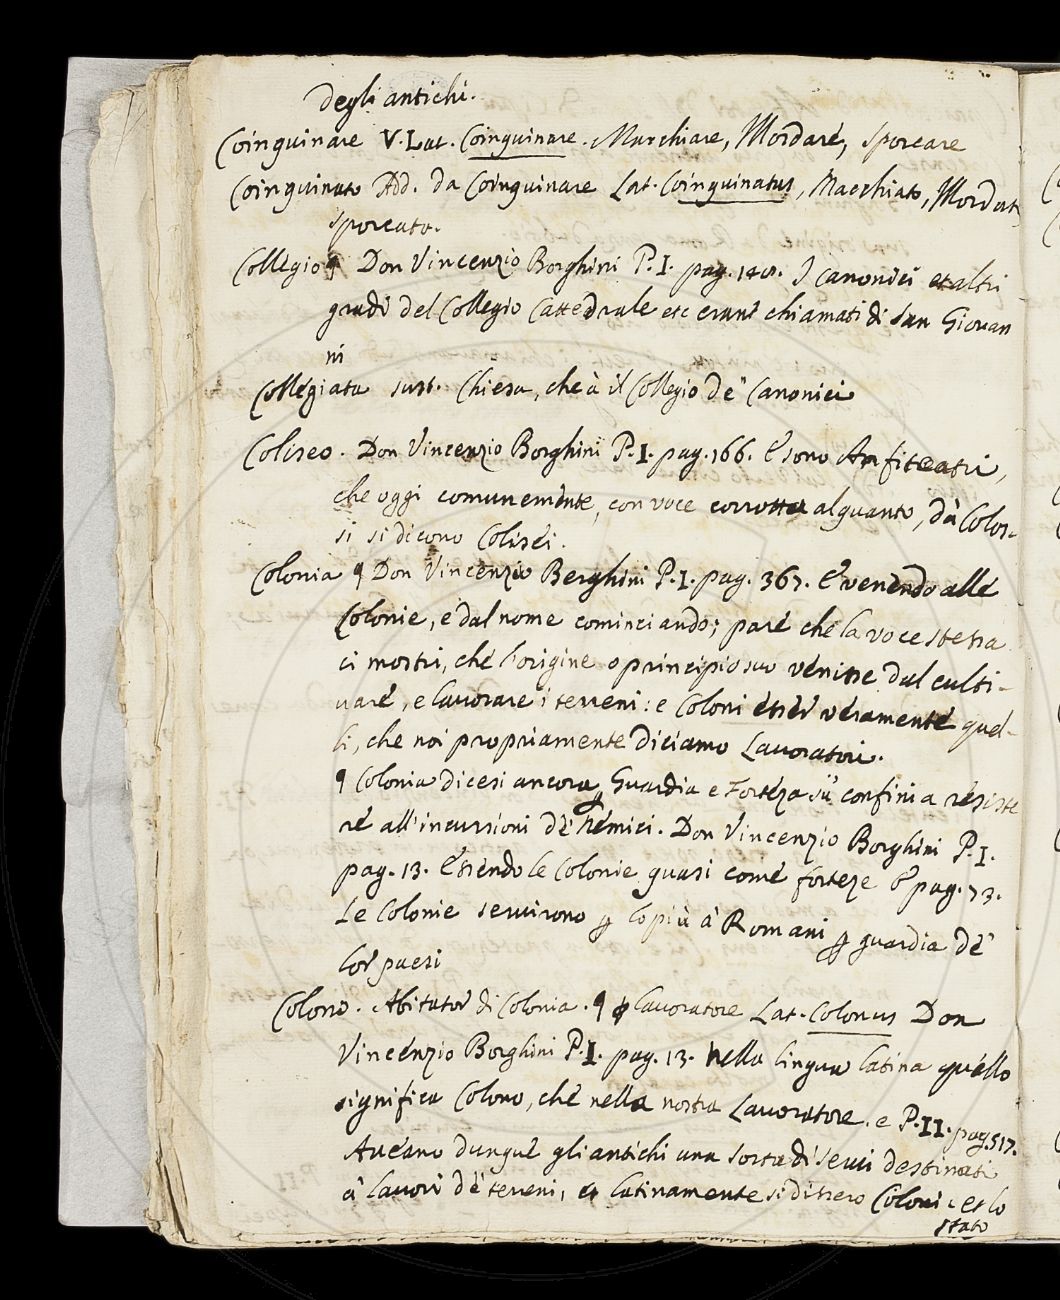 degli antichi.
Coinquinare V. Lat. Coinquinare. Macchiare, Mordare, sporcare
Coinquinato Add. da Coinquinare Lat. Coinquinatus, Macchiato, Mordat
sporcato.
Collegio ¶ Don Vincenzio Borghini P. I. pag. I canonici et altri
gradi del Collegio Cattedrale etc erano chiamati di San Giovan
ni
Collegiata sust. Chiesa, che à il Collegio de' Canonici
Coliseo. Don Vincenzio Borghini P. I. pag. 166. E sono Anfiteatri,
che oggi comunemente, con voce corrotta alquanto, dà Colos-
si si dicono Colisèi.
Colonia ¶ Don Vincenzio Borghini P. I. pag. 367. E venendo alle
Colonie, e dal nome cominciando; pare che la voce stessa
ci mostri, che l'origine o principio suo venisse dal culti-
vare, e lavorare i terreni: e Coloni esser veramente quel-
li, che noi propriamente diciamo Lavoratori.
¶ Colonia dicesi ancora Guardia e Forteza sù confini a resiste
re all'incursioni de' nemici. Don Vincenzio Borghini P. I.
pag. 13. Essendo le Colonie quasi come forteze & pag. 73.
Le Colonie servirono ꝑ lo più à Romani ꝑ guardia de'
lor paesi
Colono. Abitator di Colonia. ¶ lavoratore Lat. Colonus Don
Vincenzio Borghini P. I. pag. 13. nella lingua latina quello
significa Colono, che nella nostra Lavoratore. e P. II. pag. 517.
Aveano dunque gli antichi una sorta di servi destinati
a' lavori de' terreni, e latinamente si dissero Coloni: et lo
stato